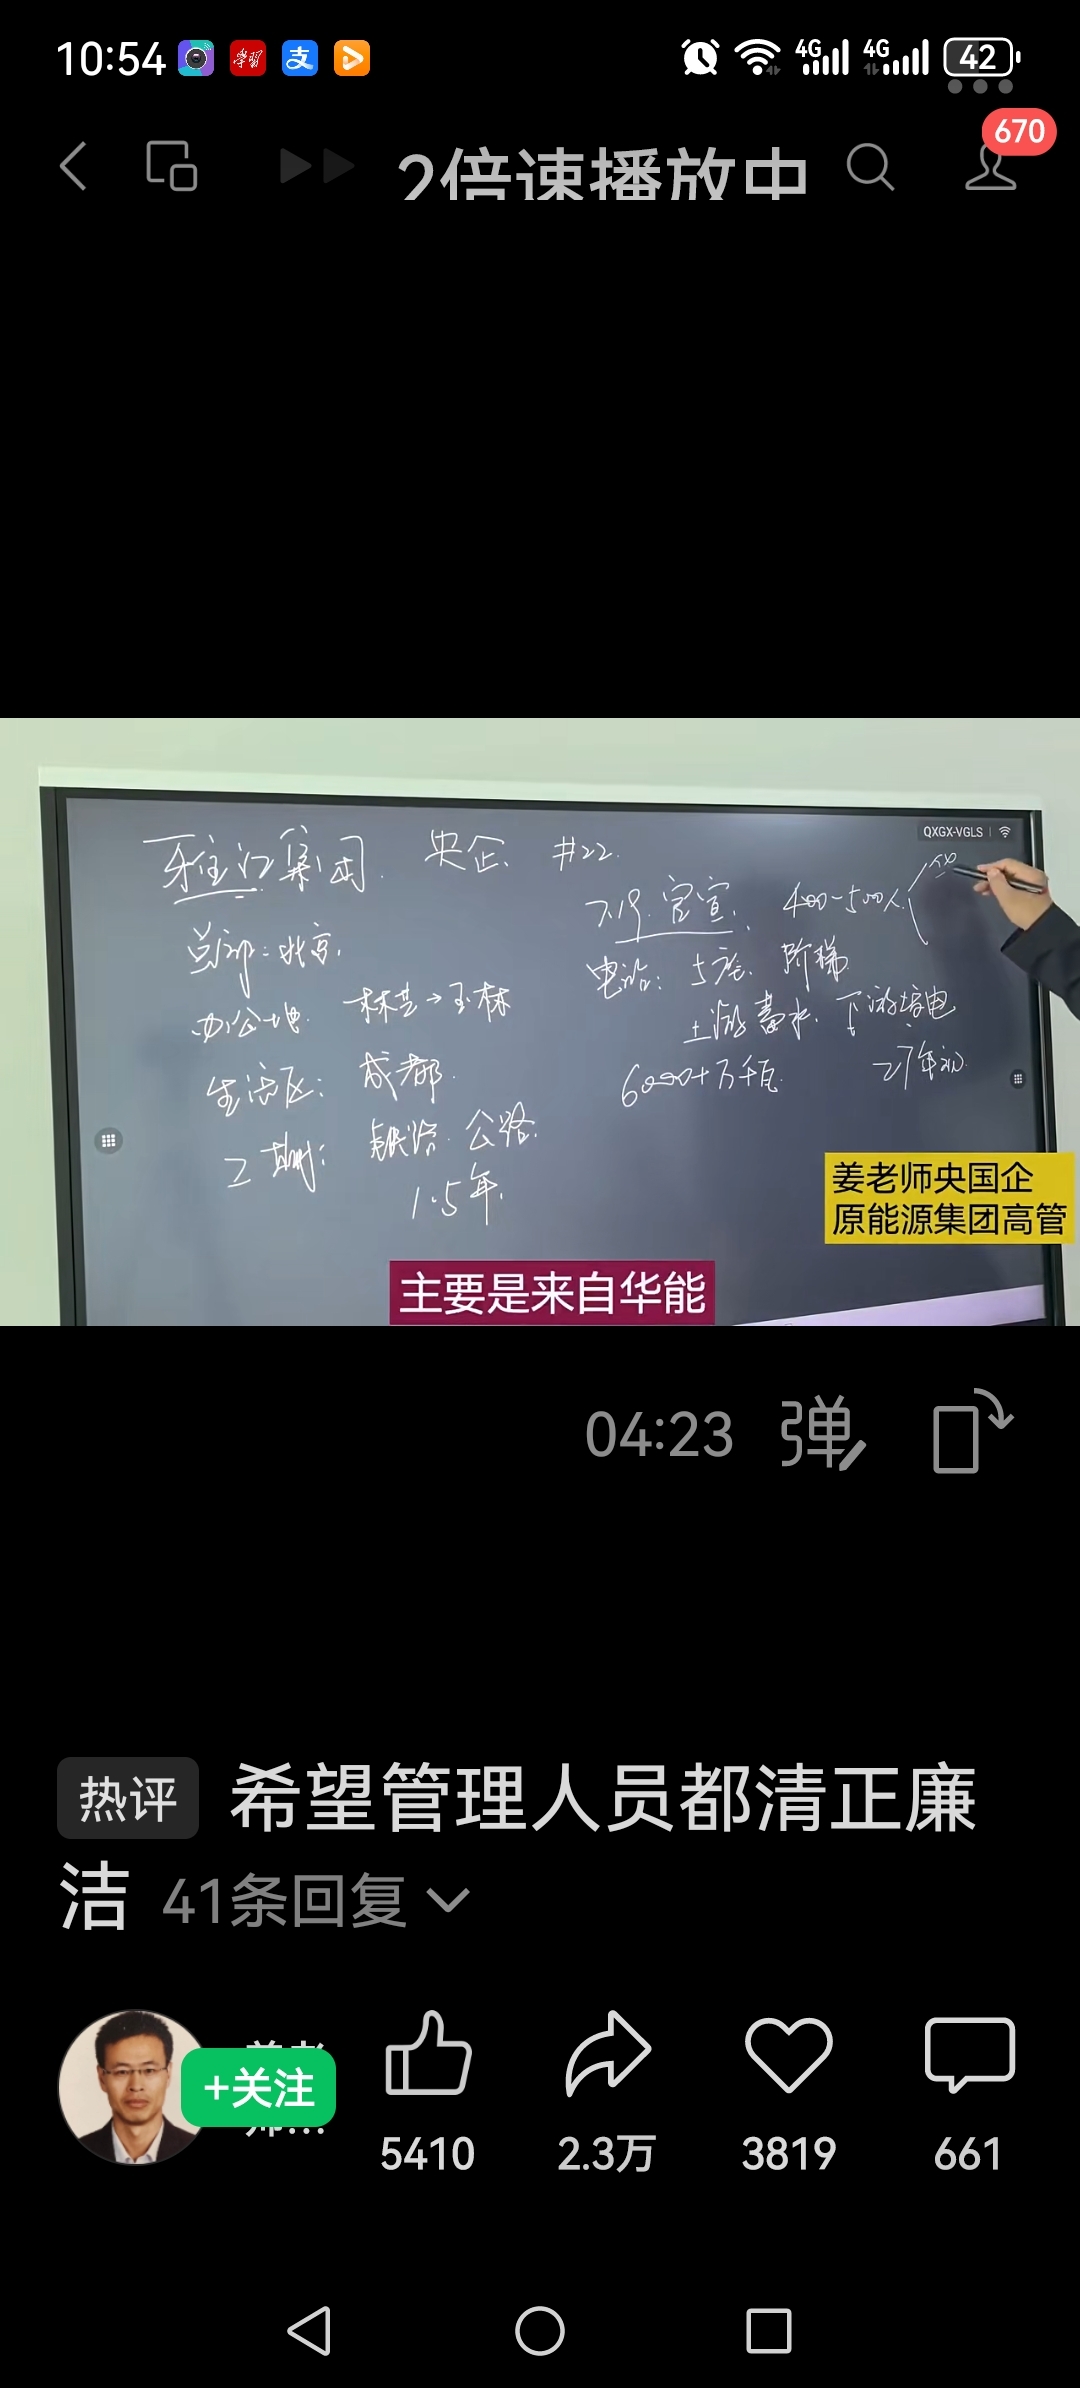 10:54 学习 支 4G 4G 42
670
2倍速播放中
QXGX-VGLS
雅江集团. 央企. #22.
7.19. 官宣. 400-500人
总部: 北京.
电站: 5座. 阶梯
办公地. 林芝→玉林
上游蓄水. 下游发电
生活区: 成都.
6000+万千瓦. 27年初.
工期: 铁路. 公路.
1.5年.
姜老师央国企
原能源集团高管
主要是来自华能
04:23 弹
热评 希望管理人员都清正廉
洁 41条回复
+关注
5410 2.3万 3819 661